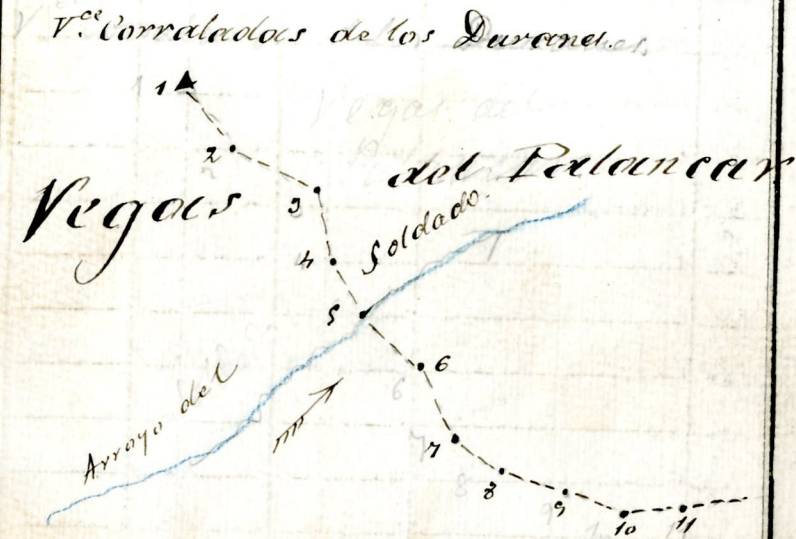 V.ce Corraladas de los Duranes.
1
2
Vegas del Palancar
3
Arroyo del Soldado.
4
5
6
7
8
9
10
11